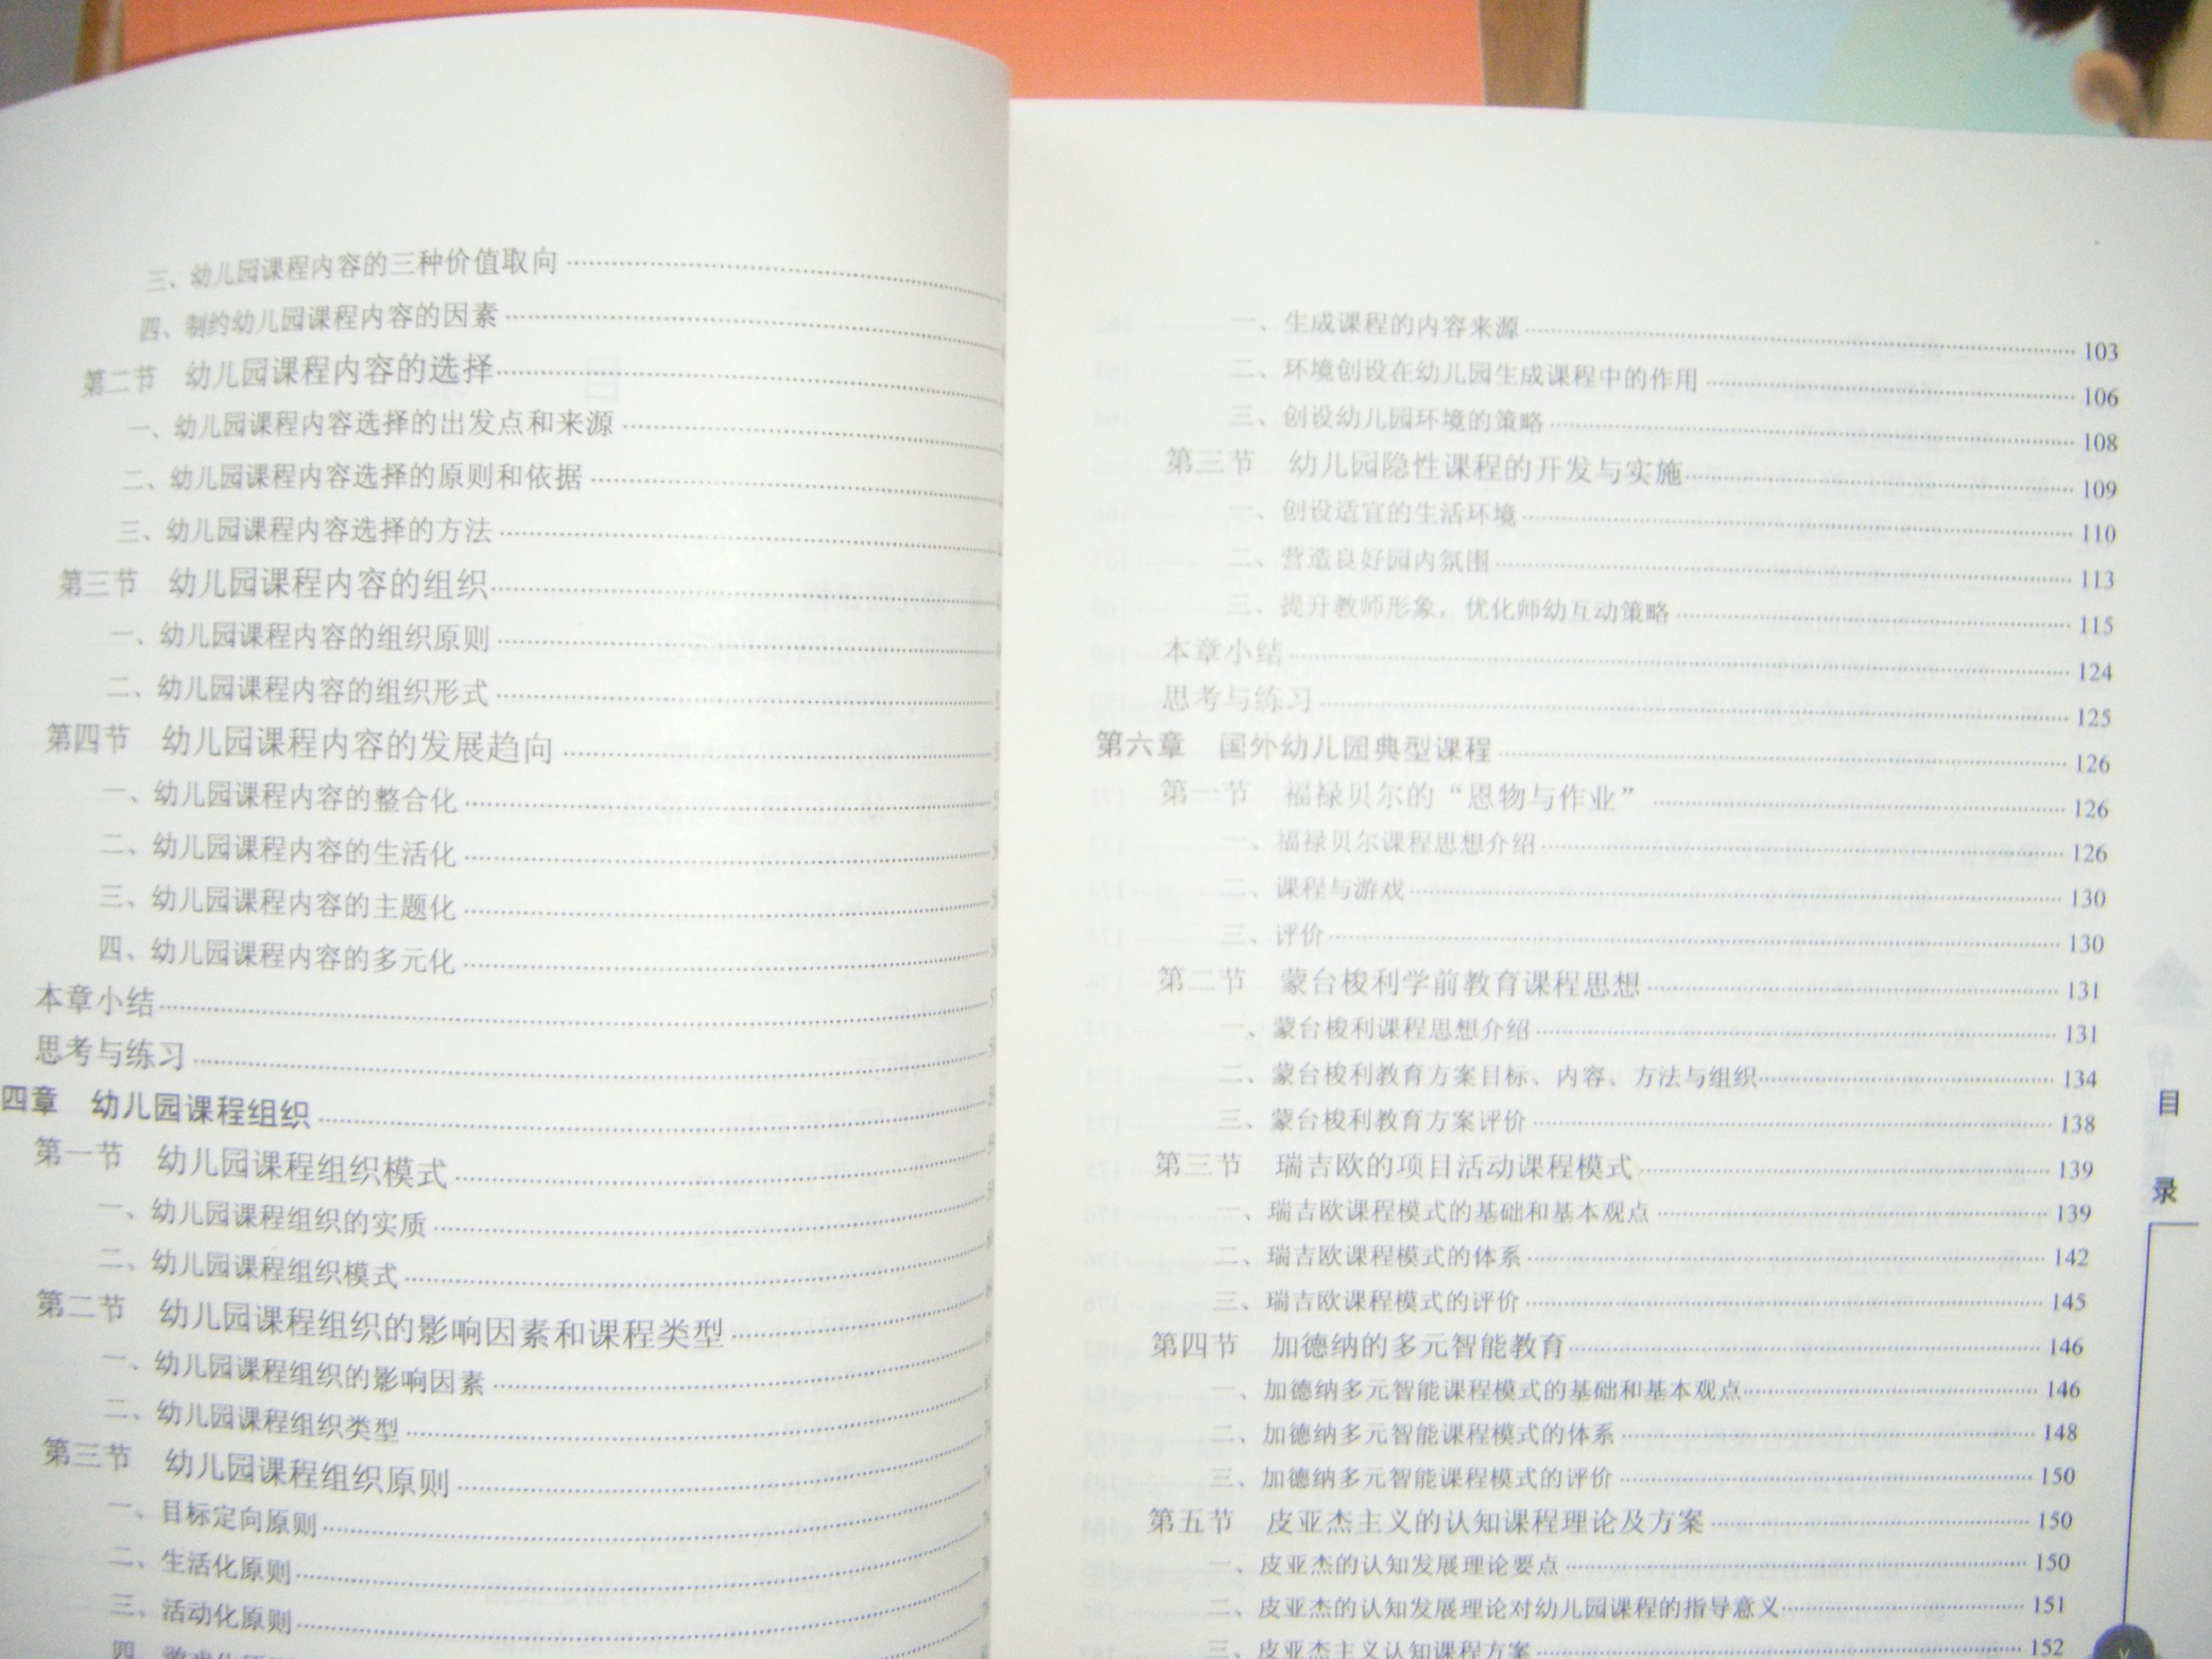 三、幼儿园课程内容的三种价值取向
四、制约幼儿园课程内容的因素
第二节 幼儿园课程内容的选择
一、幼儿园课程内容选择的出发点和来源
二、幼儿园课程内容选择的原则和依据
三、幼儿园课程内容选择的方法
第三节 幼儿园课程内容的组织
一、幼儿园课程内容的组织原则
二、幼儿园课程内容的组织形式
第四节 幼儿园课程内容的发展趋向
一、幼儿园课程内容的整合化
二、幼儿园课程内容的生活化
三、幼儿园课程内容的主题化
四、幼儿园课程内容的多元化
本章小结
思考与练习
四章 幼儿园课程组织
第一节 幼儿园课程组织模式
一、幼儿园课程组织的实质
二、幼儿园课程组织模式
第二节 幼儿园课程组织的影响因素和课程类型
一、幼儿园课程组织的影响因素
二、幼儿园课程组织类型
第三节 幼儿园课程组织原则
一、目标定向原则
二、生活化原则
三、活动化原则
一、生成课程的内容来源 103
二、环境创设在幼儿园生成课程中的作用 106
三、创设幼儿园环境的策略 108
第三节 幼儿园隐性课程的开发与实施 109
一、创设适宜的生活环境 110
二、营造良好园内氛围 113
三、提升教师形象，优化师幼互动策略 115
本章小结 124
思考与练习 125
第六章 国外幼儿园典型课程 126
第一节 福禄贝尔的“恩物与作业” 126
一、福禄贝尔课程思想介绍 126
二、课程与游戏 130
三、评价 130
第二节 蒙台梭利学前教育课程思想 131
一、蒙台梭利课程思想介绍 131
二、蒙台梭利教育方案目标、内容、方法与组织 134
三、蒙台梭利教育方案评价 138
第三节 瑞吉欧的项目活动课程模式 139
一、瑞吉欧课程模式的基础和基本观点 139
二、瑞吉欧课程模式的体系 142
三、瑞吉欧课程模式的评价 145
第四节 加德纳的多元智能教育 146
一、加德纳多元智能课程模式的基础和基本观点 146
二、加德纳多元智能课程模式的体系 148
三、加德纳多元智能课程模式的评价 150
第五节 皮亚杰主义的认知课程理论及方案 150
一、皮亚杰的认知发展理论要点 150
二、皮亚杰的认知发展理论对幼儿园课程的指导意义 151
三、皮亚杰主义认知课程方案 152
目录